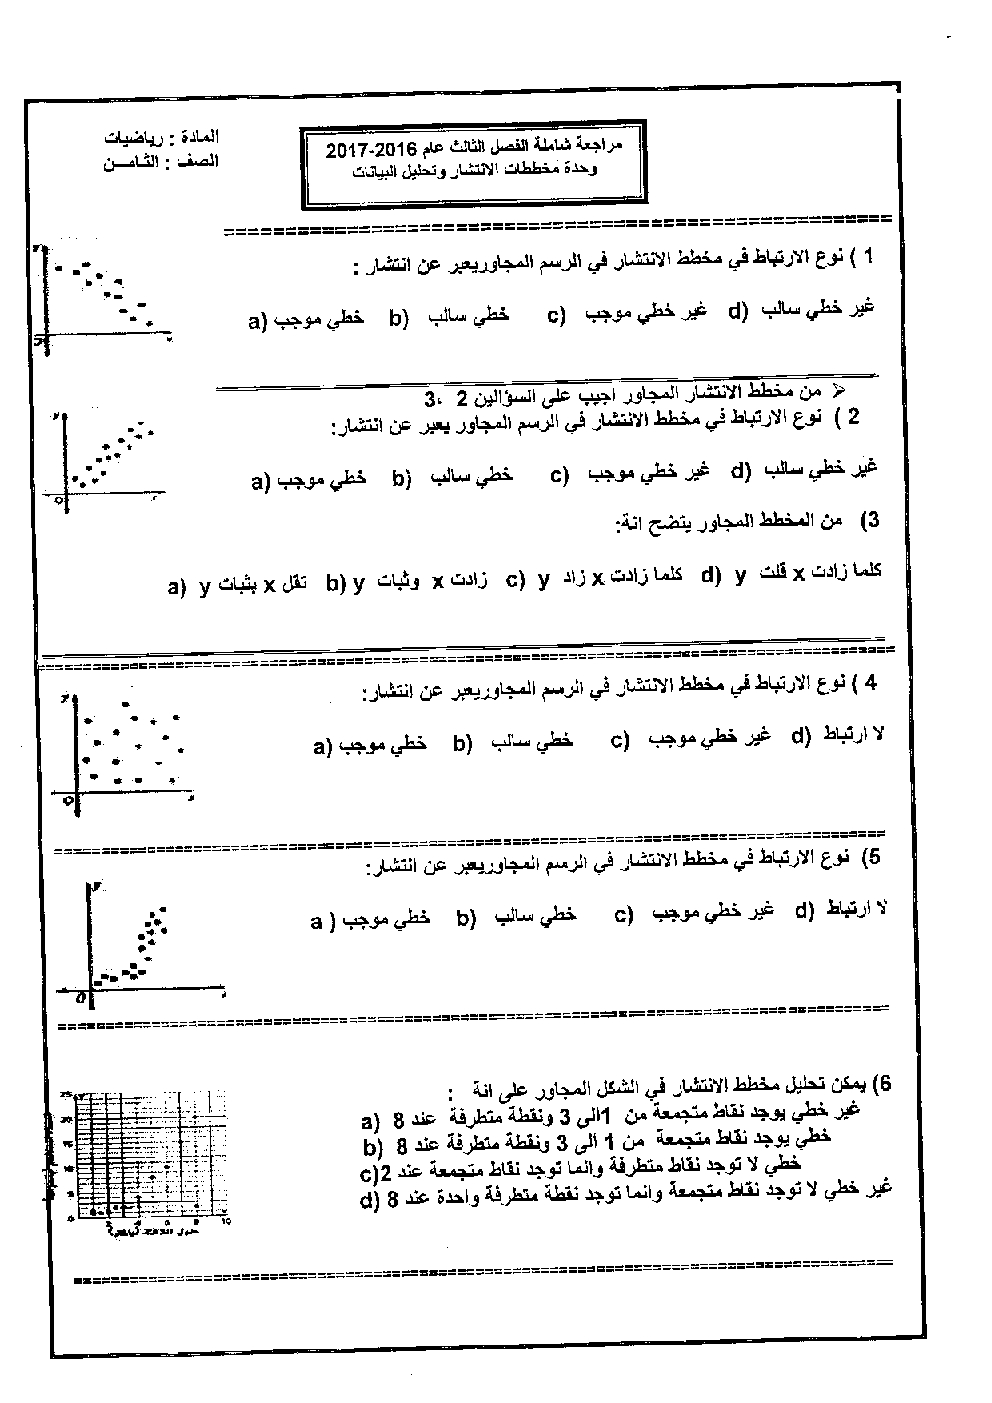 المادة : رياضيات
الصف : الثامـــن
مراجعة شاملة الفصل الثالث عام 2016-2017
وحدة مخططات الانتشار وتحليل البيانات
1 ) نوع الارتباط في مخطط الانتشار في الرسم المجاوريعبر عن انتشار :
a) خطي موجب b) خطي سالب c) غير خطي موجب d) غير خطي سالب
➢ من مخطط الانتشار المجاور اجيب على السؤالين 2 ،3
2 ) نوع الارتباط في مخطط الانتشار في الرسم المجاور يعبر عن انتشار:
a) خطي موجب b) خطي سالب c) غير خطي موجب d) غير خطي سالب
3) من المخطط المجاور يتضح انة:
a) تقل x بثبات y b) زادت x وثبات y c) كلما زادت x زاد y d) كلما زادت x قلت y
4 ) نوع الارتباط في مخطط الانتشار في الرسم المجاوريعبر عن انتشار:
a) خطي موجب b) خطي سالب c) غير خطي موجب d) لا ارتباط
5) نوع الارتباط في مخطط الانتشار في الرسم المجاوريعبر عن انتشار:
a ) خطي موجب b) خطي سالب c) غير خطي موجب d) لا ارتباط
6) يمكن تحليل مخطط الانتشار في الشكل المجاور على انة :
a) غير خطي يوجد نقاط متجمعة من 1الى 3 ونقطة متطرفة عند 8
b) خطي يوجد نقاط متجمعة من 1 الى 3 ونقطة متطرفة عند 8
c) خطي لا توجد نقاط متطرفة وانما توجد نقاط متجمعة عند 2
d) غير خطي لا توجد نقاط متجمعة وانما توجد نقطة متطرفة واحدة عند 8